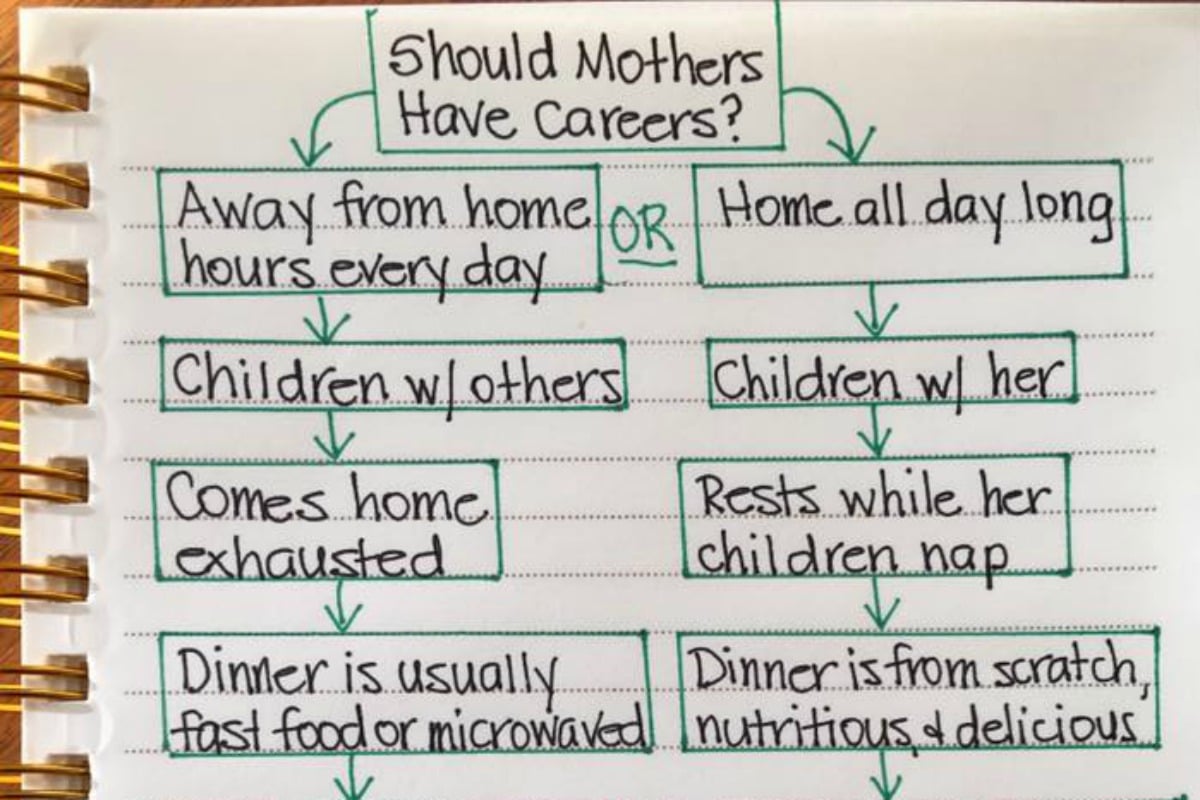 Should Mothers
Have Careers?
Away from home
hours every day
OR
Home all day long
Children w/ others
Children w/ her
Comes home
exhausted
Rests while her
children nap
Dinner is usually
fast food or microwaved
Dinner is from scratch,
nutritious, & delicious